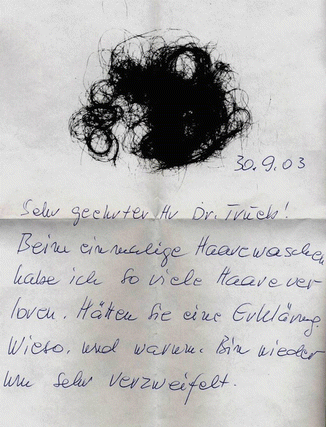 30.9.03
Sehr geehrter Hr Dr. Trüeb!
Beim einmalige Haarewaschen
habe ich so viele Haare ver
loren. Hätten Sie eine Erklärung.
Wieso, und warum. Bin wieder
um sehr verzweifelt.